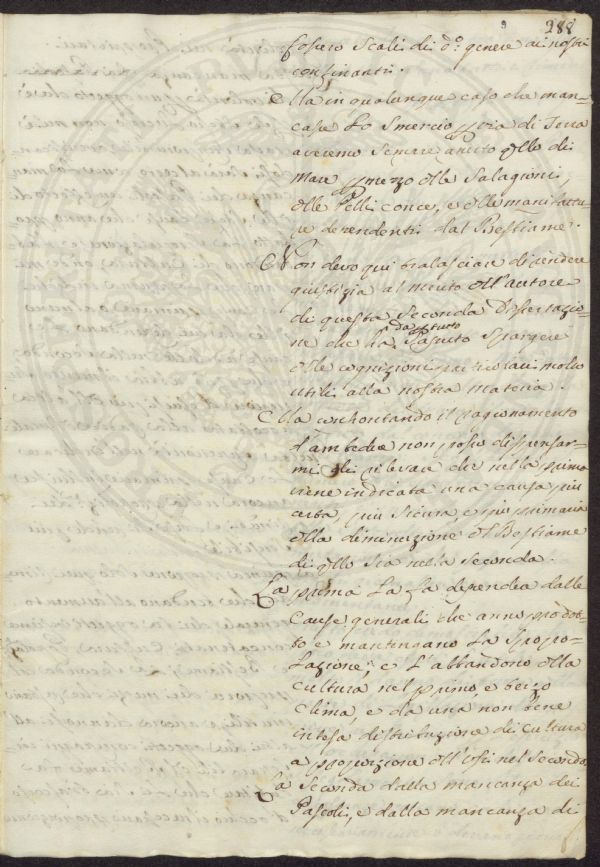 288
fossero scali di d.º genere ai nostri
confinanti.
Ma in qualunque caso che man-
casse lo smercio p via di Terra
averemo sempre aperto qllo di
Mare p mezzo dlle Salagioni,
dlle Pelli conce, e dlle manifattu-
re dependenti dal Bestiame.
Non devo qui tralasciare di rendere
giustizia al merito dell'autore
di questa seconda Dissertazio-
ne che ha da p tutto saputo spargere
dlle cognizioni particolari molto
utili alla nostra materia.
Ma confrontando il ragionamento
d'ambedue non posso dispensar-
mi di rilevare che nella prima
viene indicata una causa più
certa, più sicura, e più primaria
dlla diminuzione dl Bestiame
di qllo sia nella seconda.
La prima la fa dependere dalle
cause generali che anno prodot-
to e mantengano la spopo-
lazione, e l'abbandono dlla
cultura nel primo, e terzo
clima, e da una non bene
intesa distribuzione di cultura
a proporzione dll'usi nel secondo
La seconda dalla mancanza dei
Pascoli, e dalla mancanza di